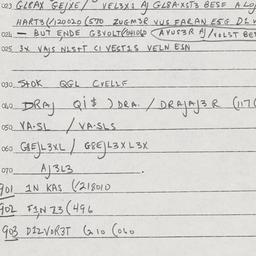 023 GLRAX GEJXE/ VEL3X1 AJ GL8A·XST3 BESF A LOJ
HART3(/120020 (570 ZUGM3R VUS FARAN E5G D2 V
024 — BUT ENDE G3VOLT(041060 (AVUS3R AJ/VOLST BET
025 3X VAJS NL5+T C1 VEST1S VELN E1N
030 STOK QGL CVELLE
040 DRAJ Qi$ ) DRA. / DRAJAJ3R (117(
050 VA·SL / VA·SLS
060 G8EJL3XL / G8EJL3XL3X
070 AJ3L3
901 1N KAS (/218010
902 F1N Z3 (496
903 D12VOR3T G10 (060